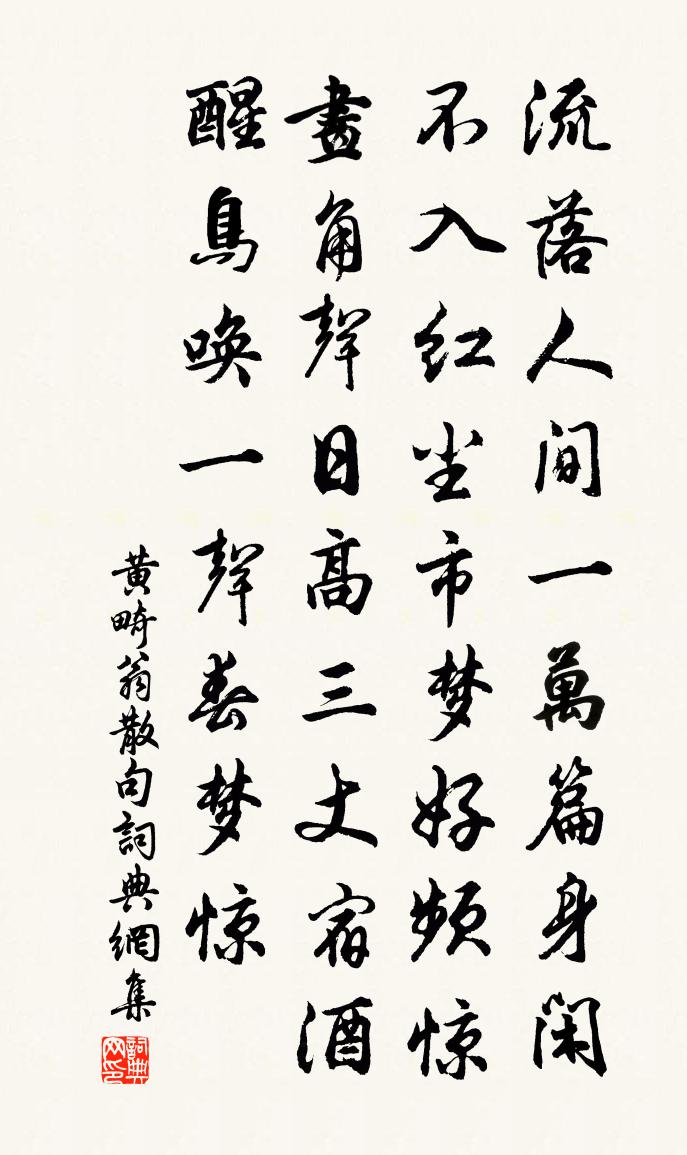 流落人间一萬篇身閑
不入红塵市梦好频惊
畫角聲日高三丈宿酒
醒鳥唤一聲春梦惊
黄畸翁散句詞典網集
詞典网印